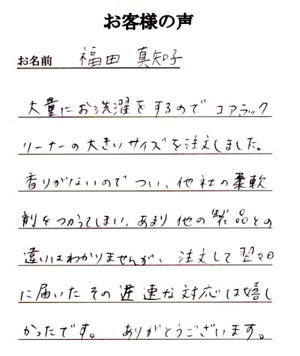 お客様の声
お名前 福田 真知子
大量にお洗濯をするのでコアラック
リーナーの大きいサイズを注文しました。
香りがないのでつい、他社の柔軟
剤をつかってしまい、あまり他の製品との
違いはわかりませんが、注文して翌日
に届いたその迅速な対応は嬉し
かったです。 ありがとうございます。